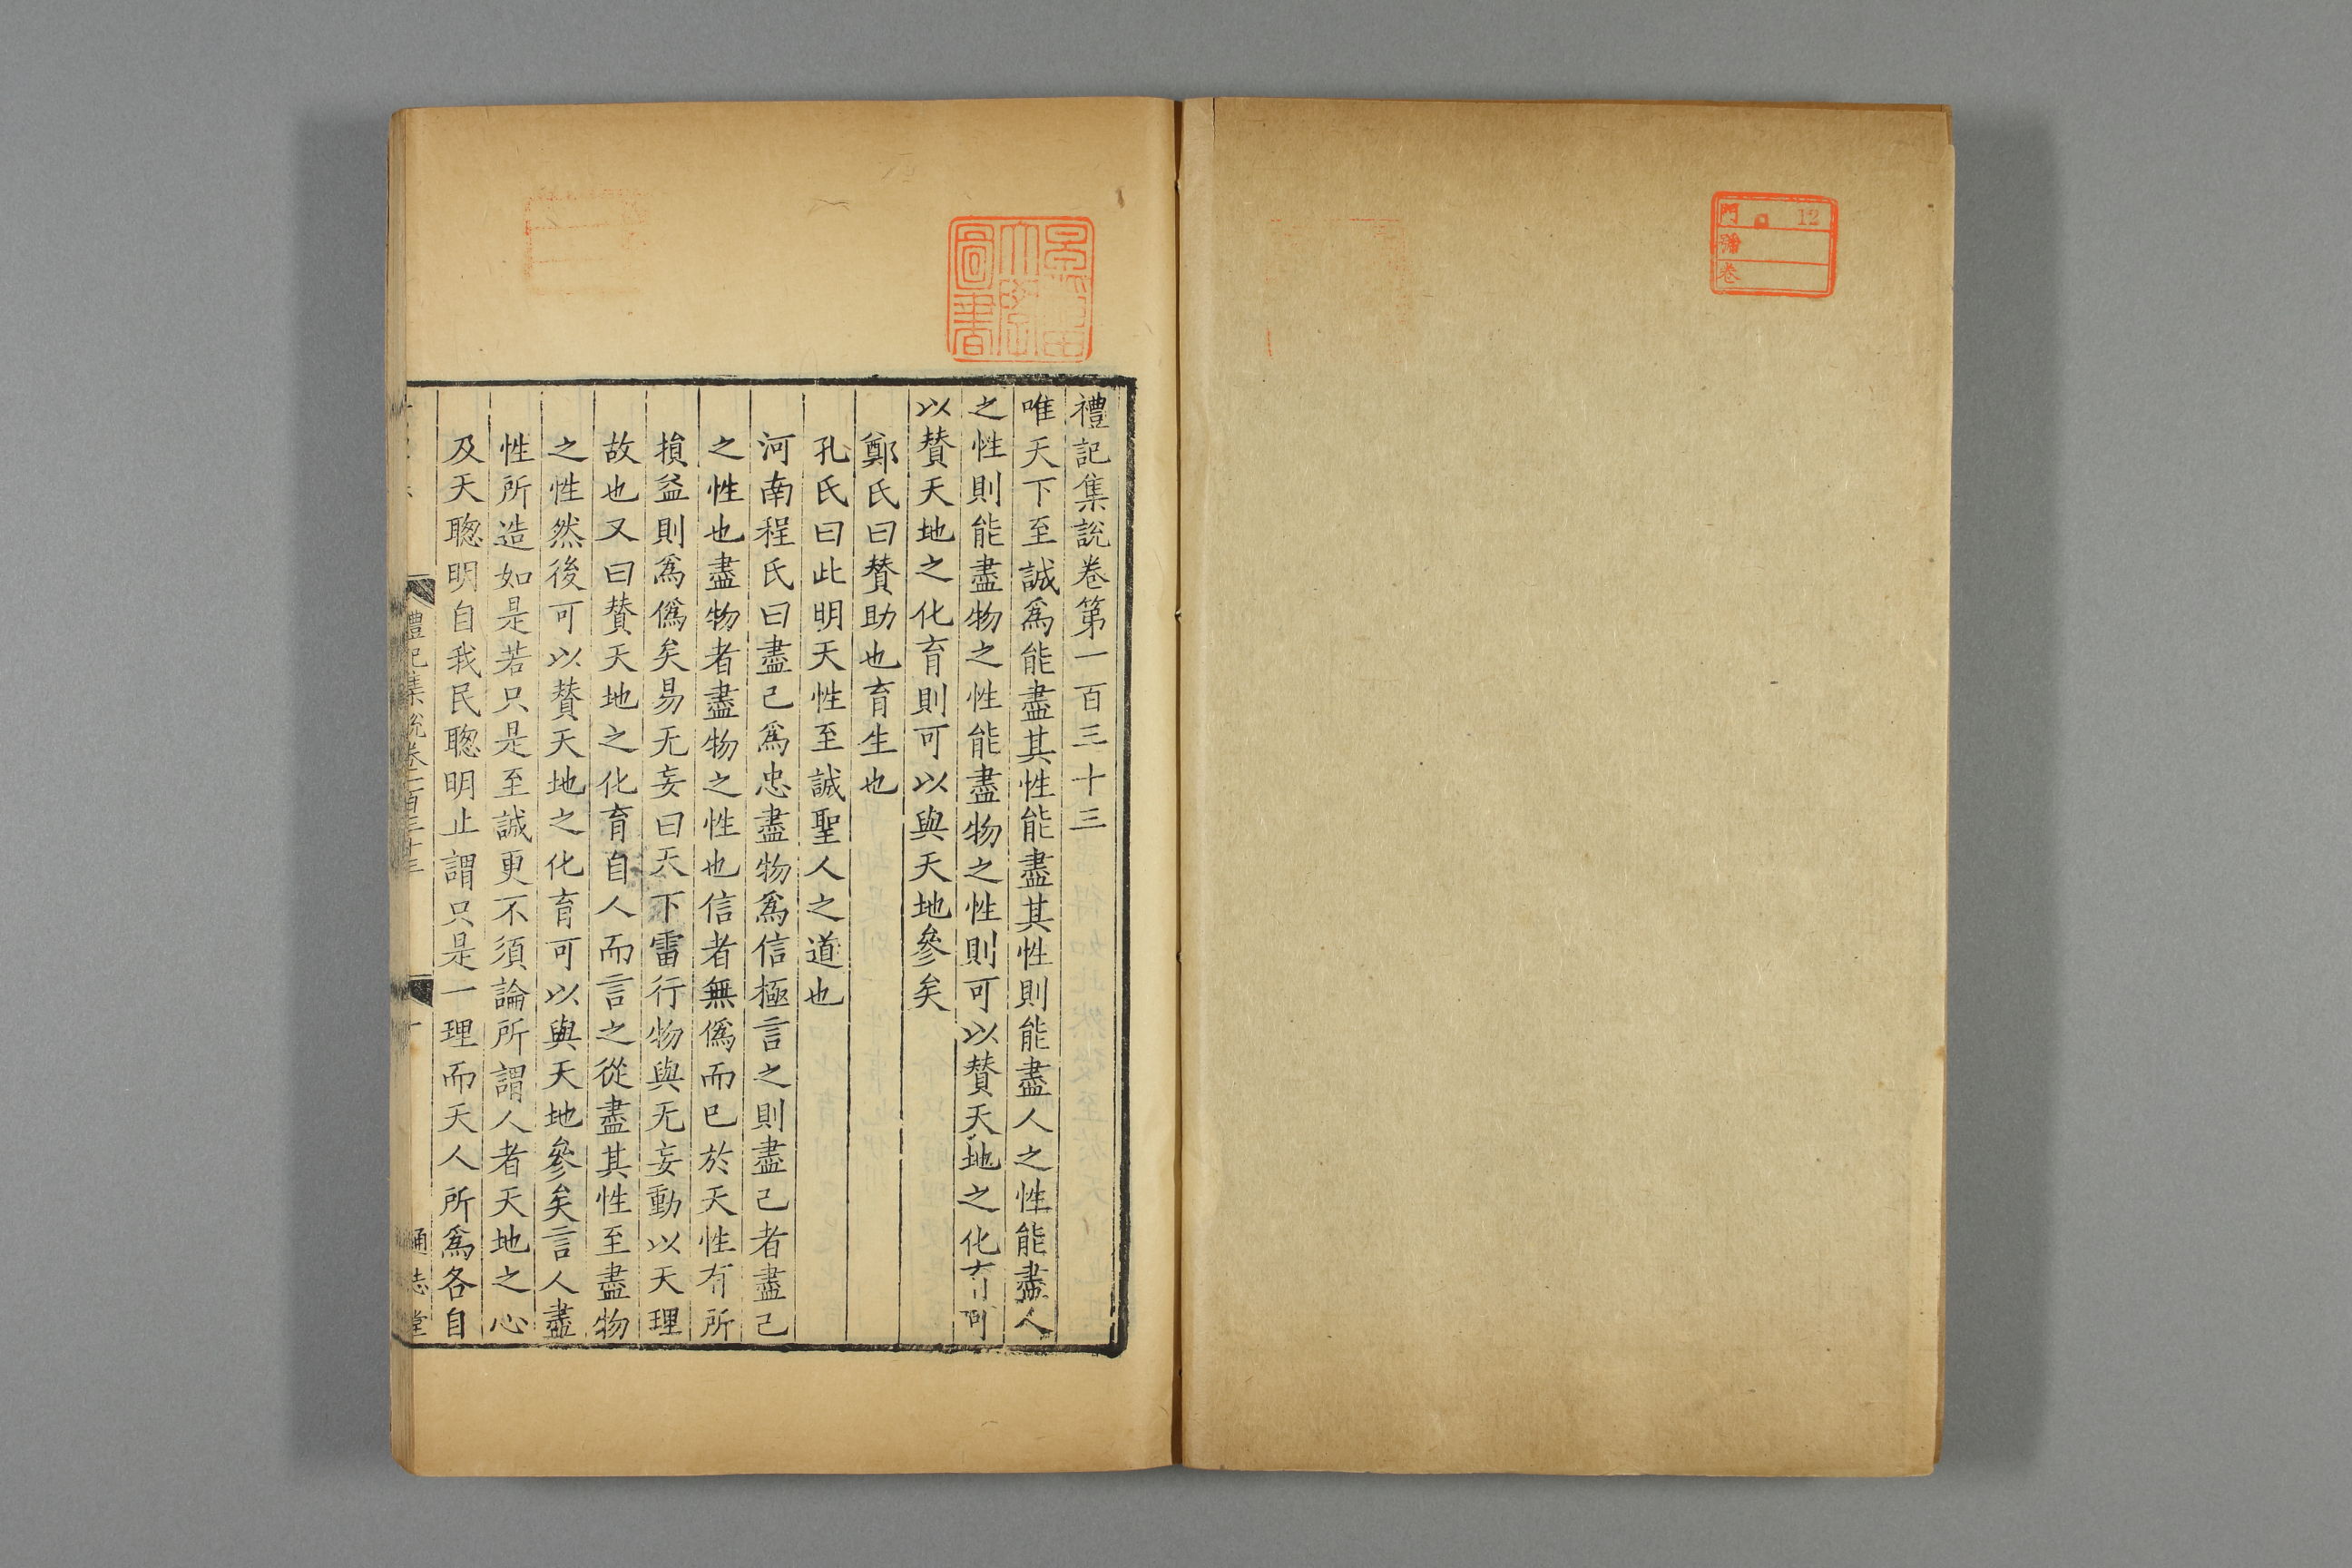 門 12
番
卷
圖書
禮記集說卷第一百三十三
唯天下至誠爲能盡其性能盡其性則能盡人之性能盡人
之性則能盡物之性能盡物之性則可以贊天地之化育可
以贊天地之化育則可以與天地參矣
鄭氏曰贊助也育生也
孔氏曰此明天性至誠聖人之道也
河南程氏曰盡己爲忠盡物爲信極言之則盡己者盡己
之性也盡物者盡物之性也信者無僞而已於天性有所
損益則爲僞矣易无妄曰天下雷行物與无妄動以天理
故也又曰贊天地之化育自人而言之從盡其性至盡物
之性然後可以贊天地之化育可以與天地參矣言人盡
性所造如是若只是至誠更不須論所謂人者天地之心
及天聰明自我民聰明止謂只是一理而天人所爲各自
禮記集說卷一百三十三
通志堂